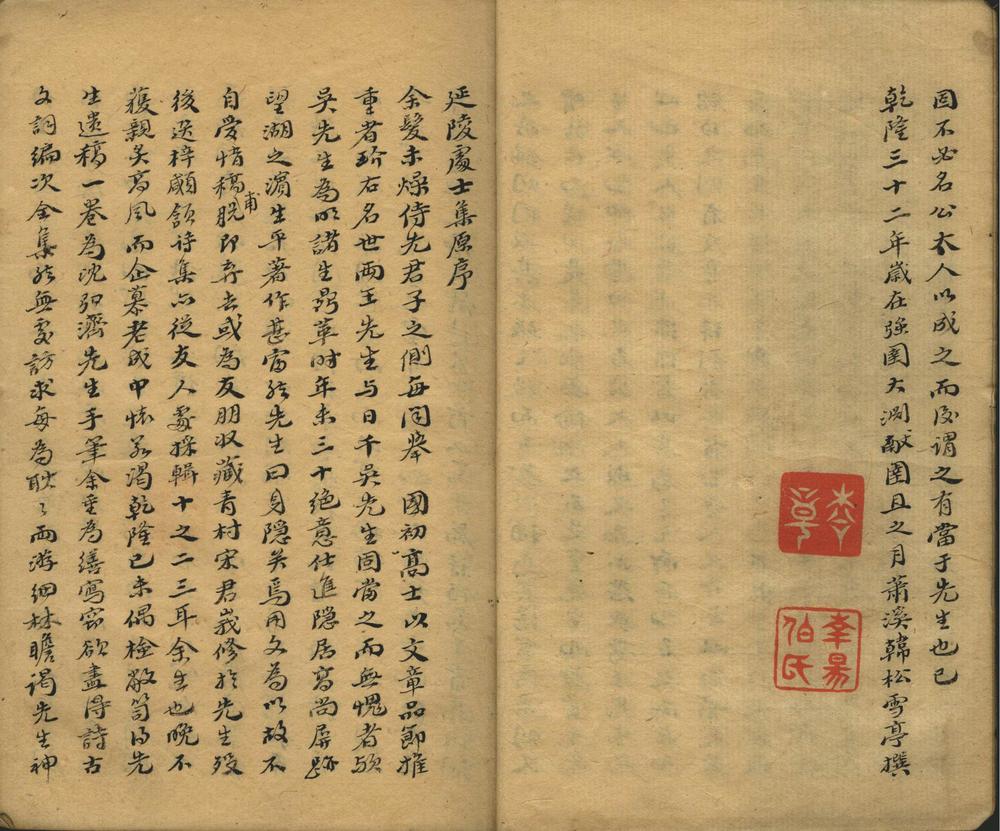 固不必名公大人以成之而後謂之有當于先生也已
乾隆三十二年歲在強圉大淵獻圉且之月蕭溪韓松雪亭撰
伯氏
延陵處士集原序
余髮未燥侍先君子之側每聞舉 國初高士以文章品節推
重者玠右名世兩王先生与日千吳先生固當之而無愧者歟
吳先生為明諸生鼎革時年未三十絕意仕進隱居高尚屏跡
望湖之濵生平著作甚富然先生曰身隱矣焉用文為以故不
自愛惜稿甫脫即弃去或為友朋収藏青村宋君峩修於先生歿
後選梓顑頷詩集亦從友人處採輯十之二三耳余生也晚不
獲親炙高風而企慕老成中懐若渴乾隆已未偶檢敝笥得先
生遺稿一卷為沈弘濟先生手筆余重為繕寫竊欲盡得詩古
文詞編次全集然無處訪求每為耿々而游細林瞻謁先生神